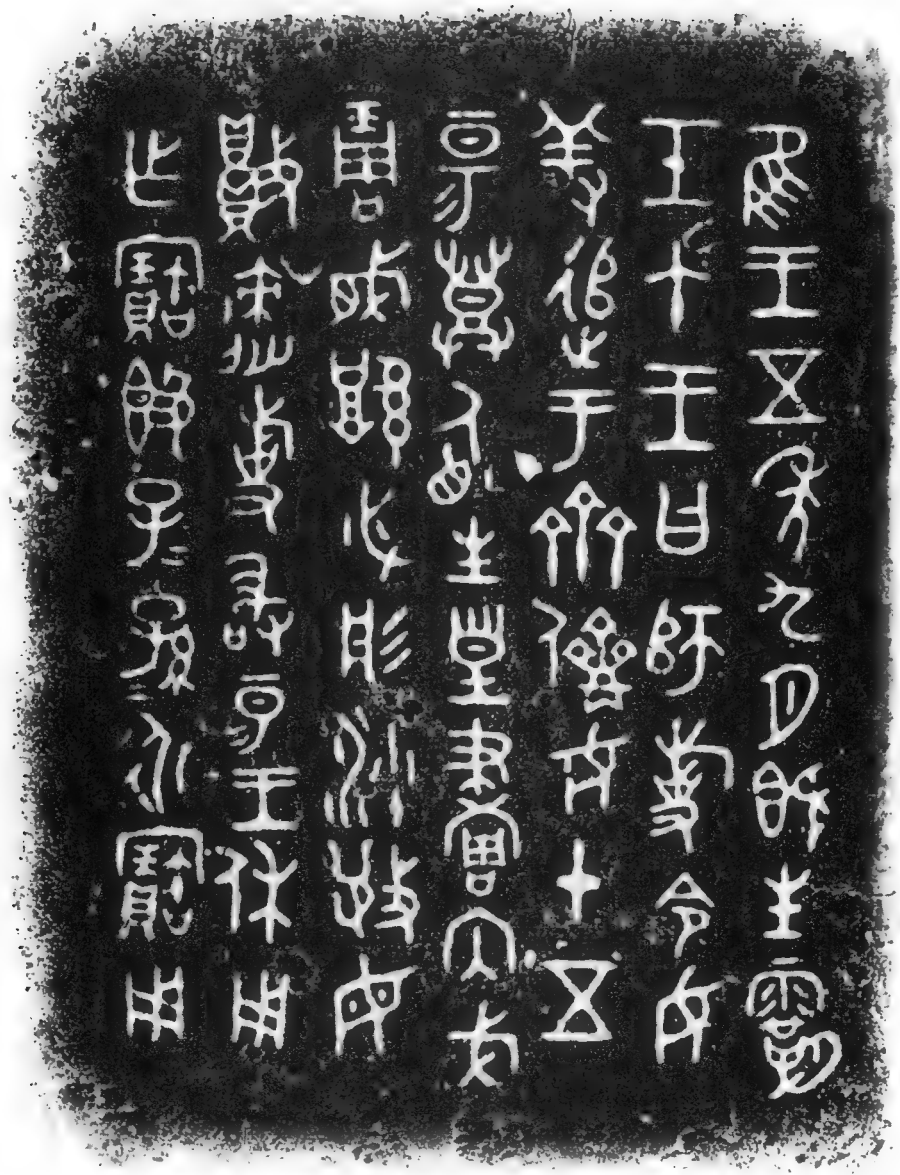 隹王五年九月既生霸
壬午王曰師旋令女
羞追于齊儕女十五
昜登盾生皇畫內戈
琱㦸厚必彤沙敬毋
敗速旋敢昜王休用
乍寶簋子=孫=永寶用